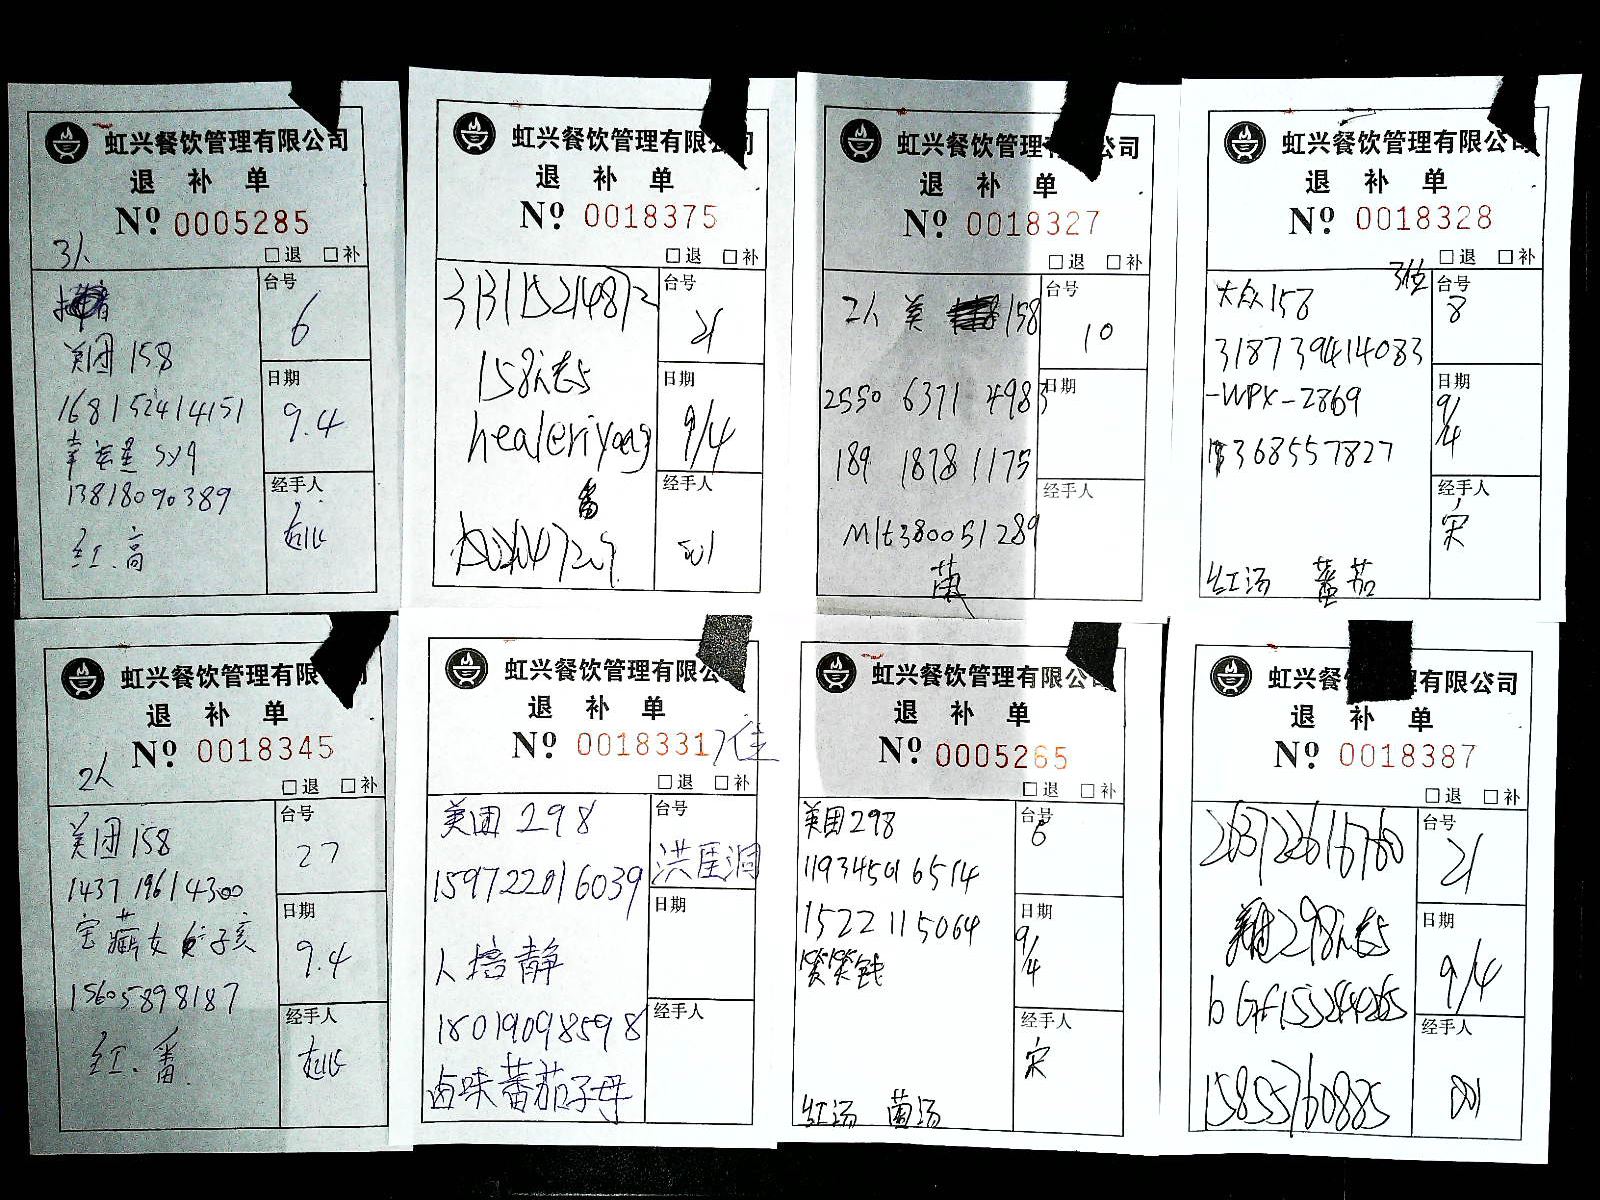 虹兴餐饮管理有限公司
退 补 单
Nº 0005285
3人
□退 □补
台号
6
美团 158
168152414151
日期
9.4
幸运星 syq
13818090389
经手人
红.高
虹兴餐饮管理有限公司
退 补 单
Nº 0018375
□退 □补
台号
21
日期
9/4
healeriyang
番
经手人
虹兴餐饮管理有限公司
退 补 单
Nº 0018327
□退 □补
台号
10
2人 美 158
2550 6371 4983
日期
189 1878 1175
经手人
Mlt380051289
菌
虹兴餐饮管理有限公司
退 补 单
Nº 0018328
□退 □补
3位
台号
8
大众158
318739414083
-WPX-2869
日期
9/4
13368557827
经手人
宋
红汤 蕃茄
虹兴餐饮管理有限公司
退 补 单
Nº 0018345
2人
□退 □补
台号
27
美团158
1437 1961 4300
日期
9.4
宝藏女孩子亥
15605898187
经手人
红.番
虹兴餐饮管理有限公司
退 补 单
Nº 0018331
□退 □补
台号
洪崖洞
美团 298
159722016039
日期
人培静
18019098598
经手人
卤味蕃茄子母
虹兴餐饮管理有限公司
退 补 单
Nº 0005265
□退 □补
台号
6
美团298
119345016514
1522 115064
日期
9/4
经手人
宋
红汤 菌汤
虹兴餐饮管理有限公司
退 补 单
Nº 0018387
□退 □补
台号
21
263722616760
日期
9/4
经手人
15855760885